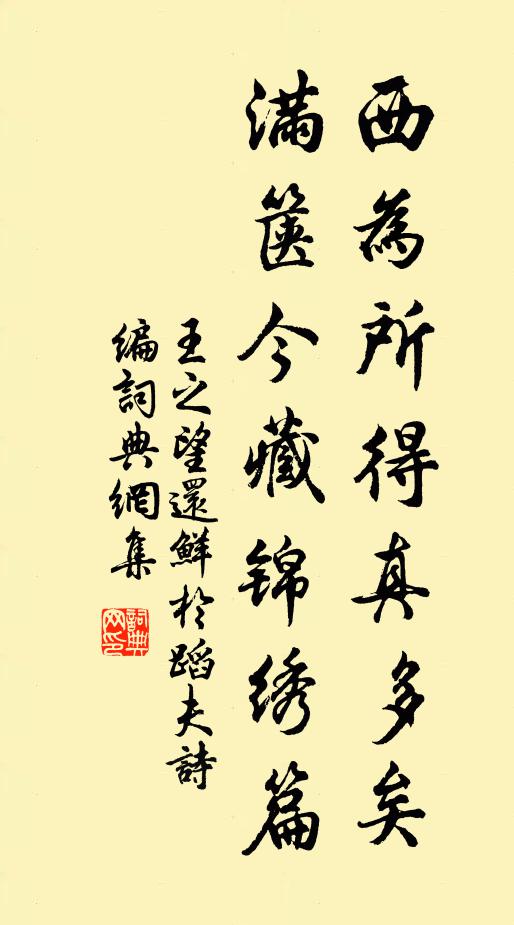 西為所得真多矣
满篋今藏锦绣篇
王之望還鮮於蹈夫詩
編詞典網集
詞典网印